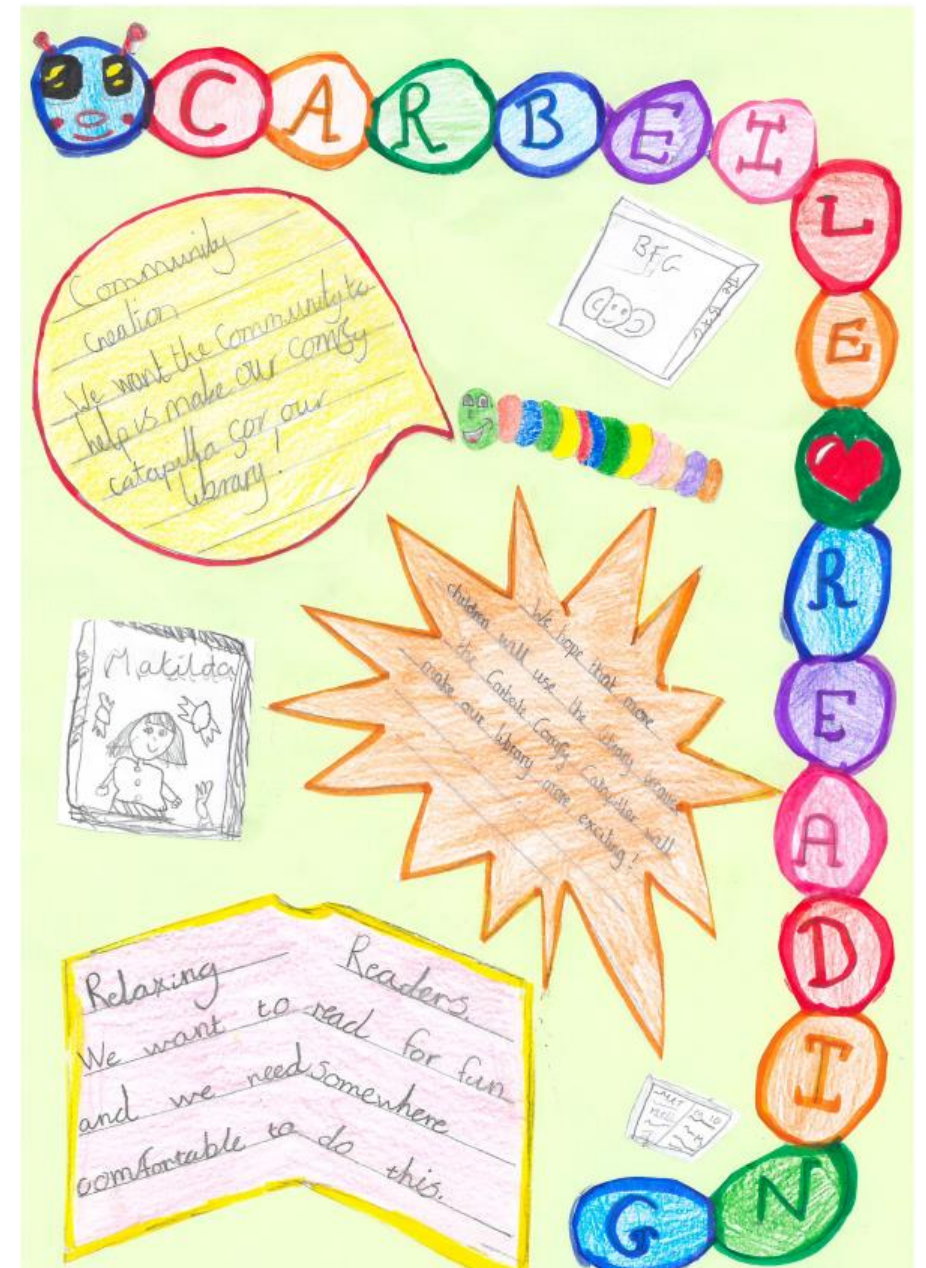 CARBEILE ♥ READING
Community
creation
We want the Community to
help us make our comfy
catapilla for our
library!
BFG
The BFG
Matilda
We hope that more
children will use the library
the Comfy will
make our library more exciting!
Relaxing Readers.
We want to read for fun
and we need somewhere
comfortable to do this.